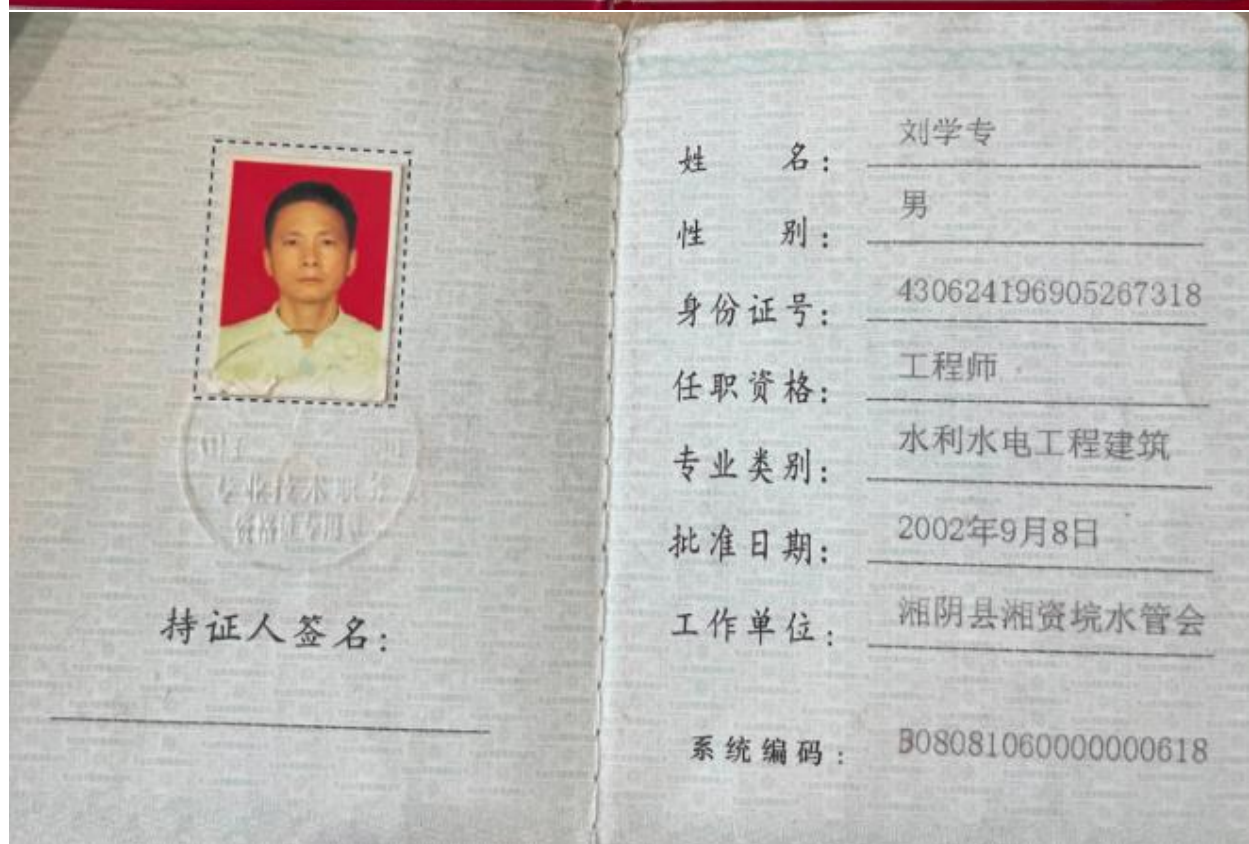 专业技术职务
资格证专用章
持证人签名：
姓名： 刘学专
性别： 男
身份证号： 430624196905267318
任职资格： 工程师
专业类别： 水利水电工程建筑
批准日期： 2002年9月8日
工作单位： 湘阴县湘资垸水管会
系统编码： B08081060000000618